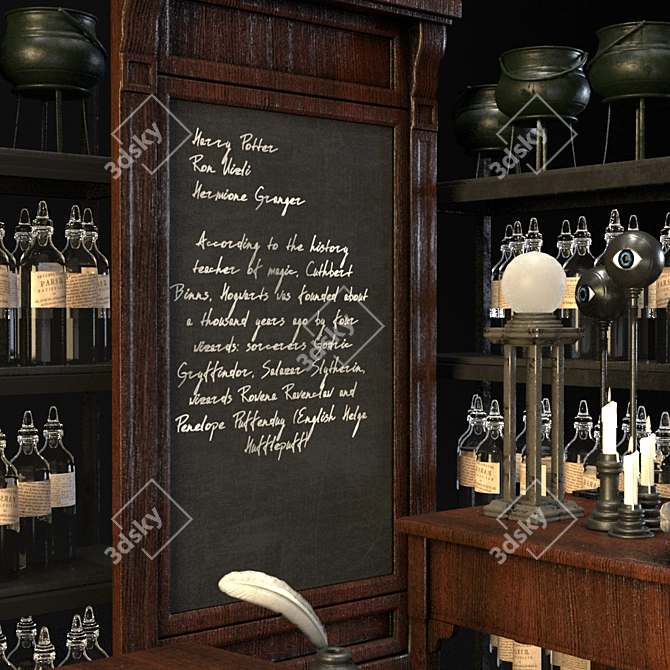 Harry Potter
Ron Uizli
Hermione Granger
According to the history
teacher of magic, Cuthbert
Binns, Hogwarts was founded about
a thousand years ago by four
wizards: sorcerers Godric
Gryffindor, Salazar Slytherin,
wizards Rowena Ravenclaw and
Penelope Puffenduy (English Helga
Hufflepuff)
3dsky
3dsky
3dsky
3dsky
3dsky